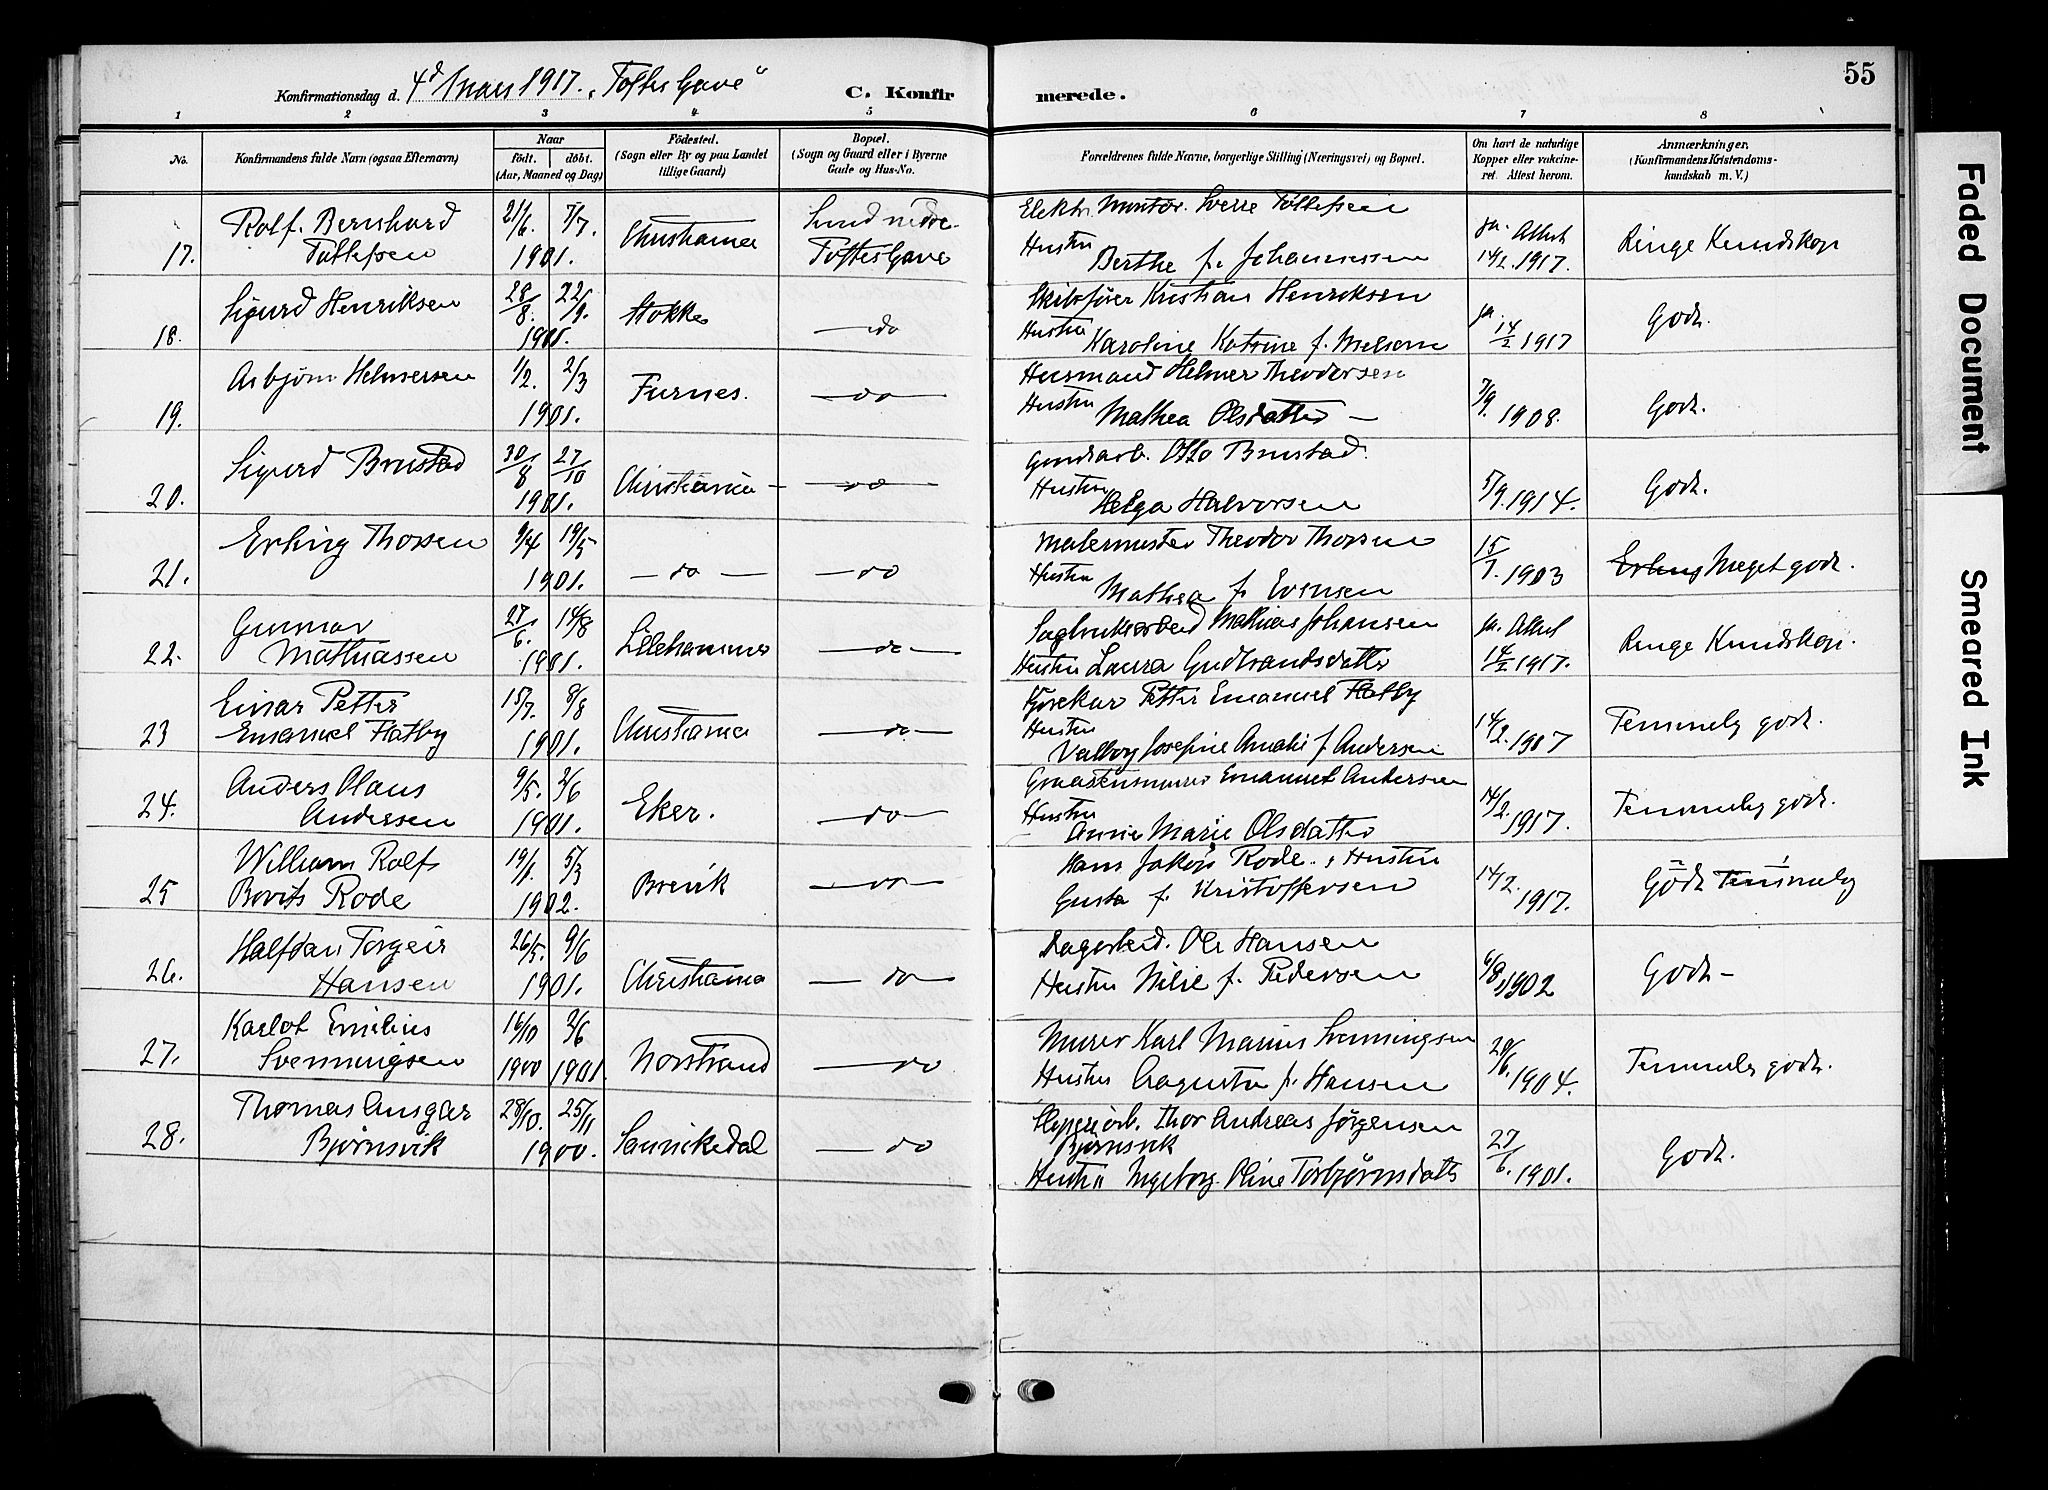 55
Konfirmationsdag d. 4d Mars 1917. „Toftes Gave"
C. Konfir
merede.
1 2 3 4 5 6 7 8
No.
Konfirmandens fulde Navn (ogsaa Efternavn)
Naar
födt. döbt.
(Aar, Maaned og Dag)
Födested.
(Sogn eller By og paa Landet
tillige Gaard)
Bopæl.
(Sogn og Gaard eller i Byerne
Gade og Hus-No.
Forældrenes fulde Navne, borgerlige Stilling (Næringsvei) og Bopæl.
Om havt de naturlige
Kopper eller vakcine-
ret. Attest herom.
Anmærkninger.
(Konfirmandens Kristendoms-
kundskab m. V.)
17. Rolf Bernhard Tollefsen 21/6. 7/7. 1901. Christiania Toftes Gave
Elektr. Montör. Sverre Tollefsen
Hustru Berthe f. Johannessen
ja. Attest 14/2. 1917. Ringe Kundskap
18. Sigurd Henriksen 28/8. 22/9. 1901. Stokke do
Skibsfører Kristian Henriksen
Hustru Karoline Katrine f. Melsom
ja. 14/2 1917 Godt.
19. Asbjørn Helmersen 1/2. 2/3 1901. Furnes. do
Husmand Helmer Theodorsen
Hustru Mathea Olsdatter
7/9. 1908. Godt.
20. Sigurd Brustad 30/8 27/10 1901. Christiania do
Otto Brustad.
Hustru Helga Halvorsen
5/9. 1914. Godt.
21. Erling Thorsen 9/4 19/5 1901. do do
Malermester Theodor Thorsen
Hustru Mathea f. Evensen
15/1. 1903 Erling Meget godt.
22. Gunnar Mathiassen 27/6. 14/8 1901. Lillehammer do
Sagbruksarbeid Mathias Johansen
Hustru Laura Gudbrandsdatter
ja. Attest 14/2 1917. Ringe Kundskap.
23 Einar Petter Emanuel Flatby 15/7. 8/8 1901. Christiania do
Kjørekar Petter Emanuel Flatby
Hustru Valborg Josefine Amalie f. Andersen
14/2. 1917 Temmelig godt.
24. Anders Olaus Andersen 9/5. 2/6 1901. Eker. do
Graastensmurer Emanuel Andersen
Hustru Anne Marie Olsdatter
14/2. 1917. Temmelig godt.
25 William Rolf Rode 19/1. 5/3 1902. Brevik do
Hans Jakop Rode. & Hustru
Gusta f. Kristoffersen
14/2. 1917. Godt Temmelig
26. Halfdan Torgeir Hansen 26/5. 9/6 1901. Christiania do
Dagarbeid. Ole Hansen
Hustru Nilie f. Pedersen
6/8 1902 Godt
27. Karlot Emilius Svenningsen 16/10 2/6 1900 1901. Norstrand do
Murer Karl Marius Svenningsen
Hustru Augusta f. Hansen
20/6. 1904. Temmelig godt.
28. Thomas Ansgar Bjørnsvik 28/10. 25/11 1900. Sannikedal do
Sliperiarb. Thor Andreas Jørgensen
Bjørnsvik
Hustru Ingeborg. Oline Torbjørnsdatt
27/6. 1901. Godt.
Faded Document
Smeared Ink